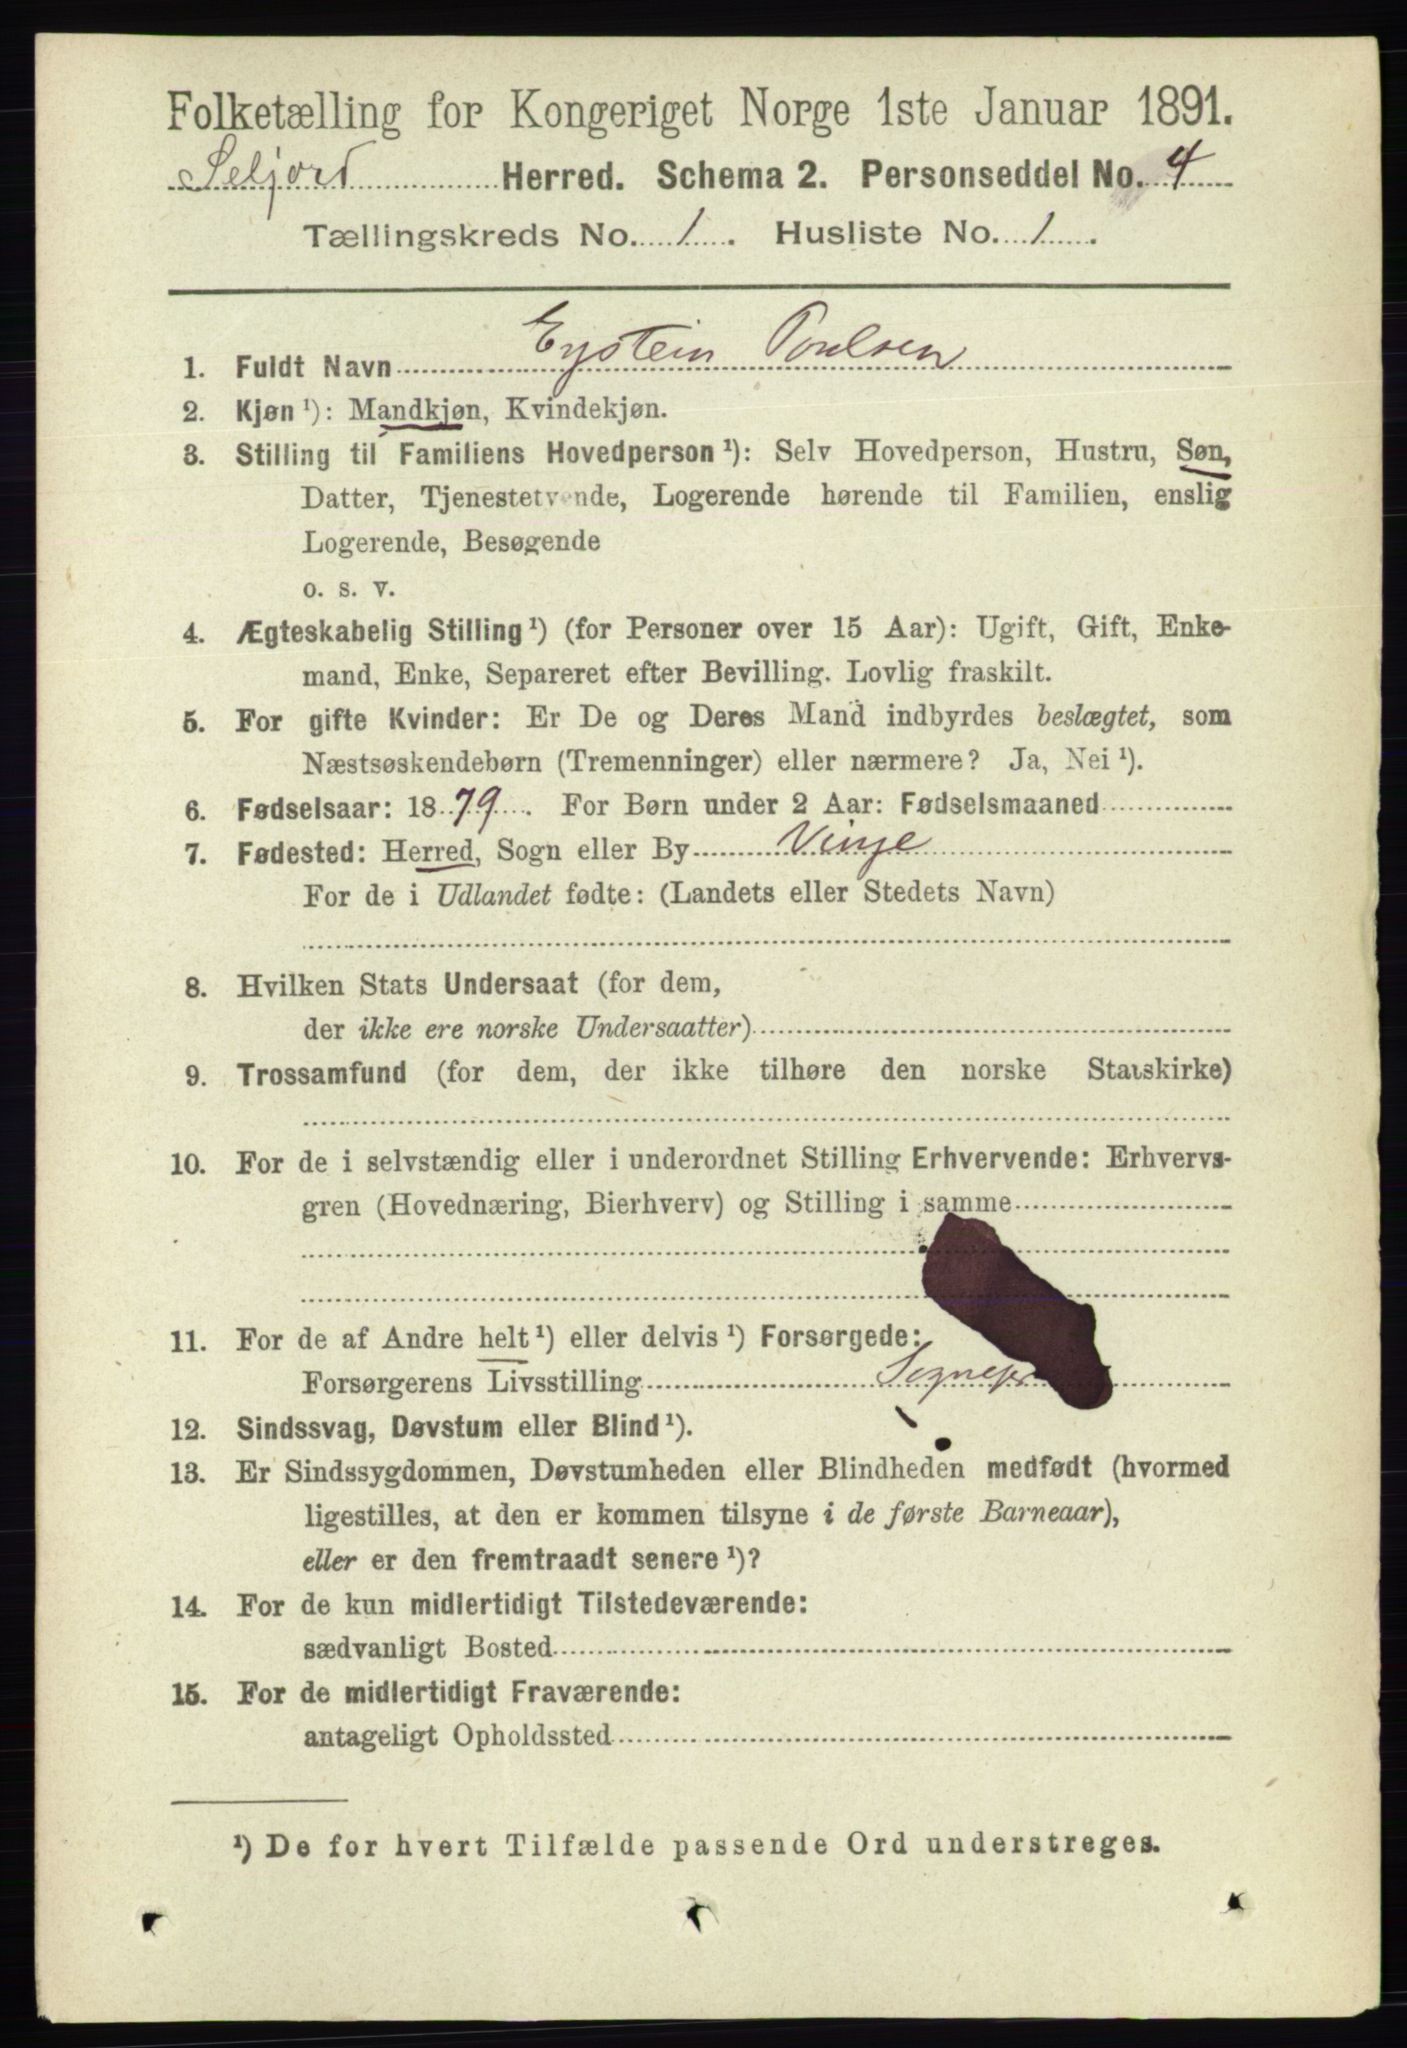 Folketælling for Kongeriget Norge 1ste Januar 1891.
Seljord Herred. Schema 2. Personseddel No. 4
Tællingskreds No. 1. Husliste No. 1.
1. Fuldt Navn Eystein Poulsen
2. Kjøn ¹): Mandkjøn, Kvindekjøn.
3. Stilling til Familiens Hovedperson ¹): Selv Hovedperson, Hustru, Søn,
Datter, Tjenestetyende, Logerende hørende til Familien, enslig
Logerende, Besøgende
o. s. v.
4. Ægteskabelig Stilling ¹) (for Personer over 15 Aar): Ugift, Gift, Enke-
mand, Enke, Separeret efter Bevilling. Lovlig fraskilt.
5. For gifte Kvinder: Er De og Deres Mand indbyrdes beslægtet, som
Næstsøskendebørn (Tremenninger) eller nærmere? Ja, Nei ¹).
6. Fødselsaar: 1879. For Børn under 2 Aar: Fødselsmaaned
7. Fødested: Herred, Sogn eller By Vinje
For de i Udlandet fødte: (Landets eller Stedets Navn)
8. Hvilken Stats Undersaat (for dem,
der ikke ere norske Undersaatter)
9. Trossamfund (for dem, der ikke tilhøre den norske Statskirke)
10. For de i selvstændig eller i underordnet Stilling Erhvervende: Erhvervs-
gren (Hovednæring, Bierhverv) og Stilling i samme
11. For de af Andre helt ¹) eller delvis ¹) Forsørgede:
Forsørgerens Livsstilling Sognepr
12. Sindssvag, Døvstum eller Blind ¹).
13. Er Sindssygdommen, Døvstumheden eller Blindheden medfødt (hvormed
ligestilles, at den er kommen tilsyne i de første Barneaar),
eller er den fremtraadt senere ¹)?
14. For de kun midlertidigt Tilstedeværende:
sædvanligt Bosted
15. For de midlertidigt Fraværende:
antageligt Opholdssted
¹) De for hvert Tilfælde passende Ord understreges.